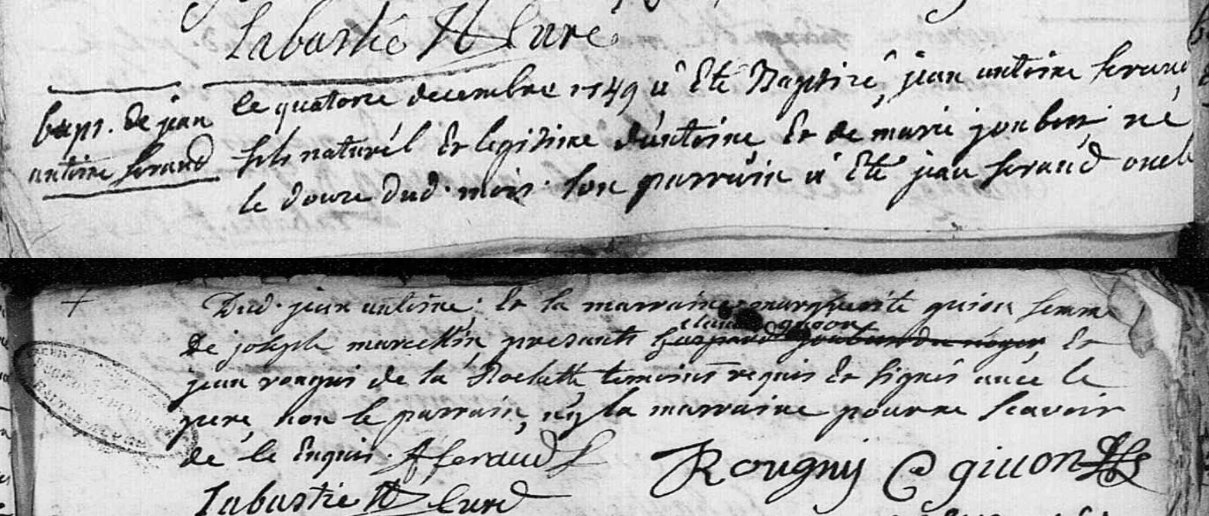 Labastie ptr Curé
bapt. de jean
antoine feraud
le quatorze decembre 1749 a été Baptizé, jean antoine feraud
fils naturél et legitime d'antoine et de marie joubert né
le douze dud. mois. son parrain a été jean feraud oncle
Dud. jean antoine. et la marraine marguerite guion femme
de joseph marcellin presants
claude guion
gaspard joubert du roger et
jean rougni de la Rochette temoins requis et signés avec le
pere, non le parrain, ny la marraine pour ne scavoir
de le Enquis. A feraud
Rougny C guion
Labastie ptr Curé